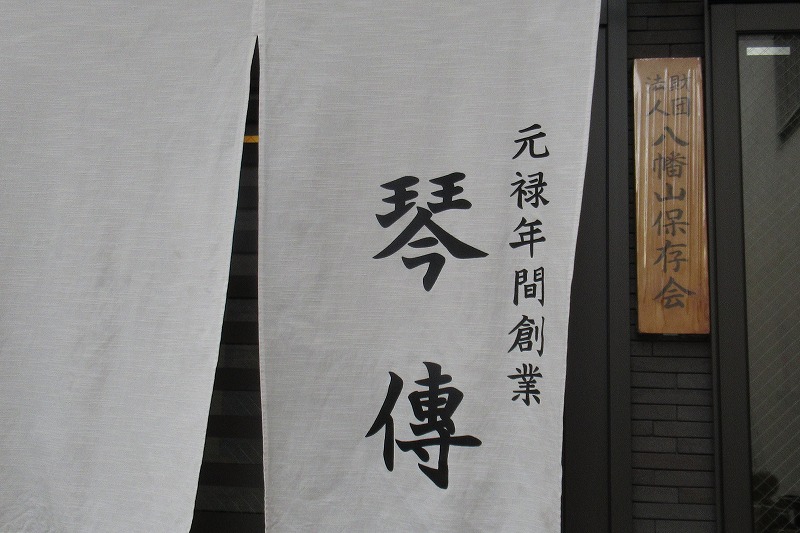 元禄年間創業
琴傳
財団
法人
八幡山保存会